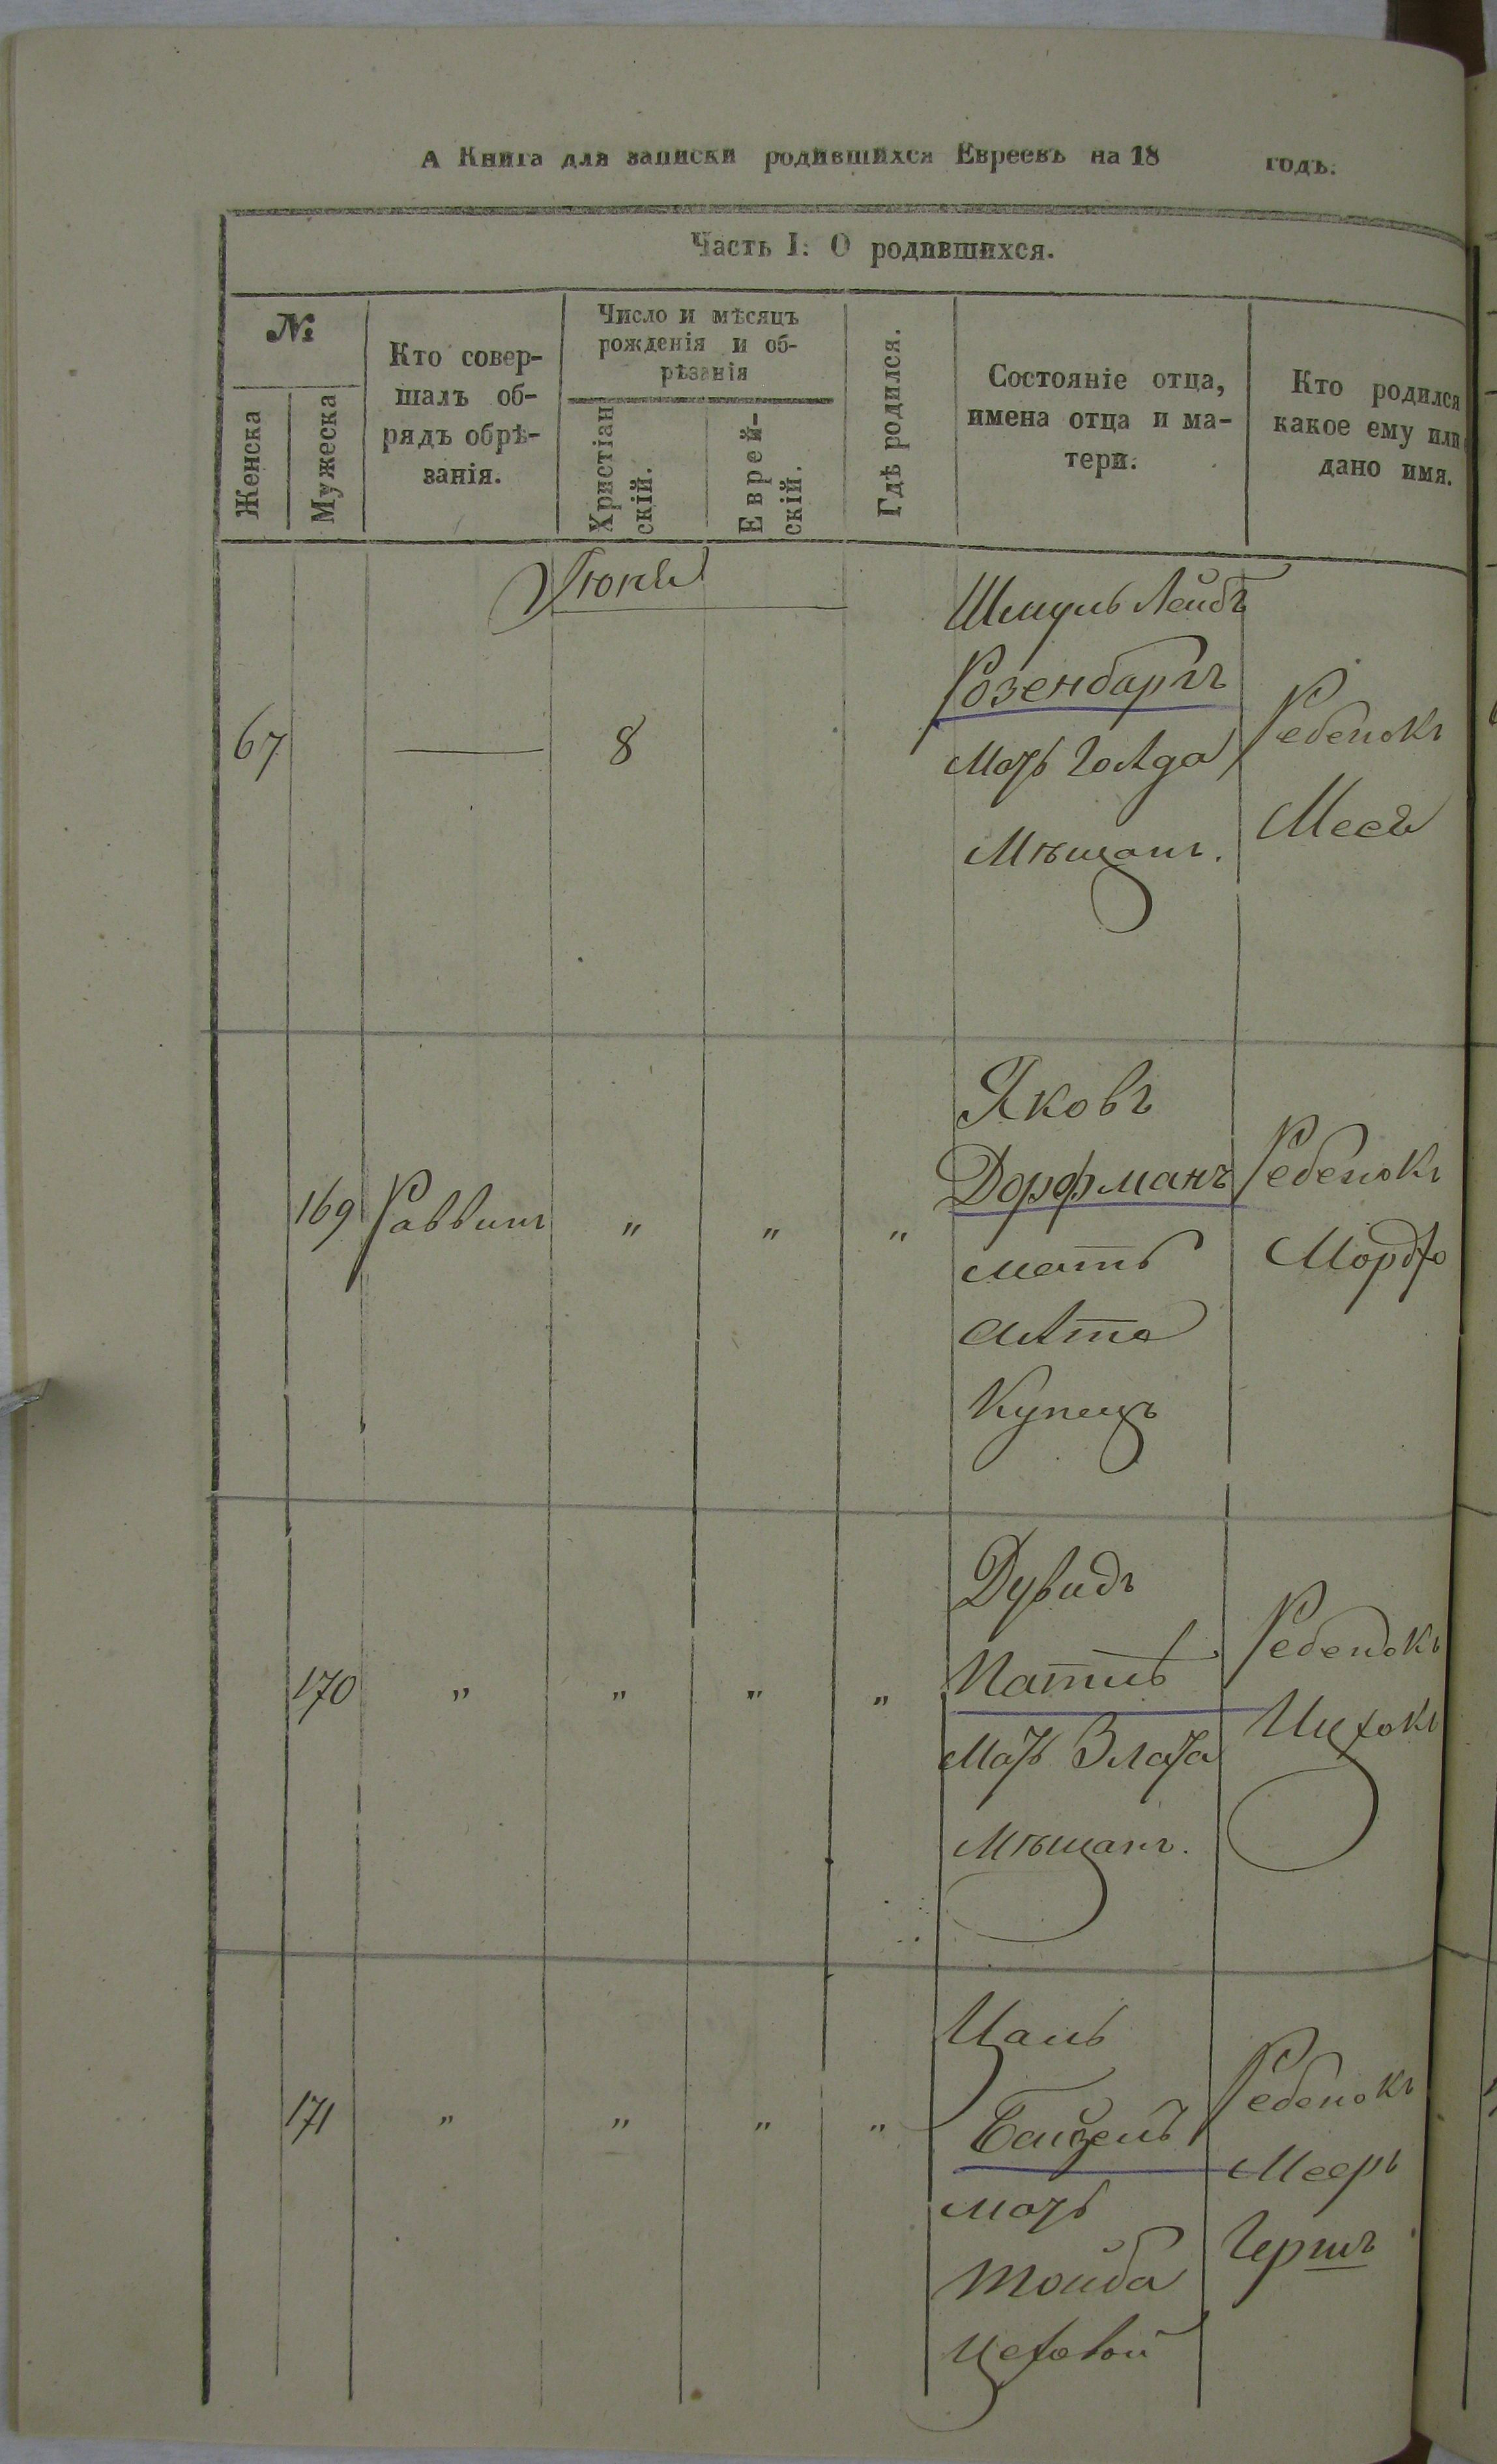 А Книга для записки родившихся Евреевъ на 18 годъ.
Часть I. О родившихся.
№
Женска
Мужеска
Кто совер-
шалъ об-
рядъ обрѣ-
занія.
Число и мѣсяцъ
рожденія и об-
рѣзанія
Христіан
скій.
Еврей-
скій.
Гдѣ родился.
Состояніе отца,
имена отца и ма-
тери.
Кто родился
какое ему или
дано имя.
67
8
Шмуль Лейбъ
Розенбаргъ
Мать Голда
Мѣщанъ.
Ребенокъ
169
Раввинъ
"
"
"
Яковъ
Дорфманъ
мать
Алта
Купецъ
Ребенокъ
Мордхо
170
"
"
"
"
Дувидъ
Мать Злата
Мѣщанъ.
Ребенокъ
Ицхокъ
171
"
"
"
"
мать
Тойба
Цеховой
Ребенокъ
Мееръ
Гершъ